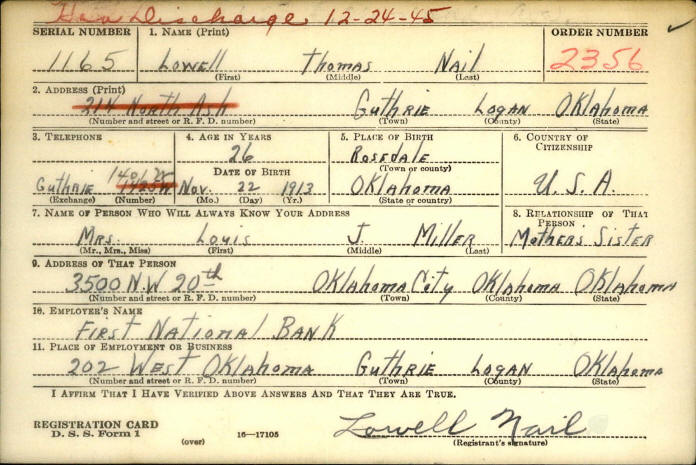 Has Discharge 12-24-45
SERIAL NUMBER 1. NAME (Print) ORDER NUMBER
1165 LOWELL THOMAS NAIL 2356
(First) (Middle) (Last)
2. ADDRESS (Print)
214 NORTH ASH GUTHRIE LOGAN OKLAHOMA
(Number and street or R. F. D. number) (Town) (County) (State)
3. TELEPHONE 4. AGE IN YEARS 5. PLACE OF BIRTH 6. COUNTRY OF CITIZENSHIP
26 ROSEDALE
DATE OF BIRTH (Town or county)
GUTHRIE NOV. 22 1913 OKLAHOMA U.S.A.
(Exchange) (Number) (Mo.) (Day) (Yr.) (State or country)
7. NAME OF PERSON WHO WILL ALWAYS KNOW YOUR ADDRESS 8. RELATIONSHIP OF THAT PERSON
MRS. LOUIS J. MILLER MOTHER'S SISTER
(Mr., Mrs., Miss) (First) (Middle) (Last)
9. ADDRESS OF THAT PERSON
3500 N.W 20th OKLAHOMA CITY OKLAHOMA OKLAHOMA
(Number and street or R. F. D. number) (Town) (County) (State)
10. EMPLOYER'S NAME
FIRST NATIONAL BANK
11. PLACE OF EMPLOYMENT OR BUSINESS
202 WEST OKLAHOMA GUTHRIE LOGAN OKLAHOMA
(Number and street or R. F. D. number) (Town) (County) (State)
I AFFIRM THAT I HAVE VERIFIED ABOVE ANSWERS AND THAT THEY ARE TRUE.
REGISTRATION CARD Lowell Nail
D. S. S. Form 1 (over) 16—17105 (Registrant's signature)